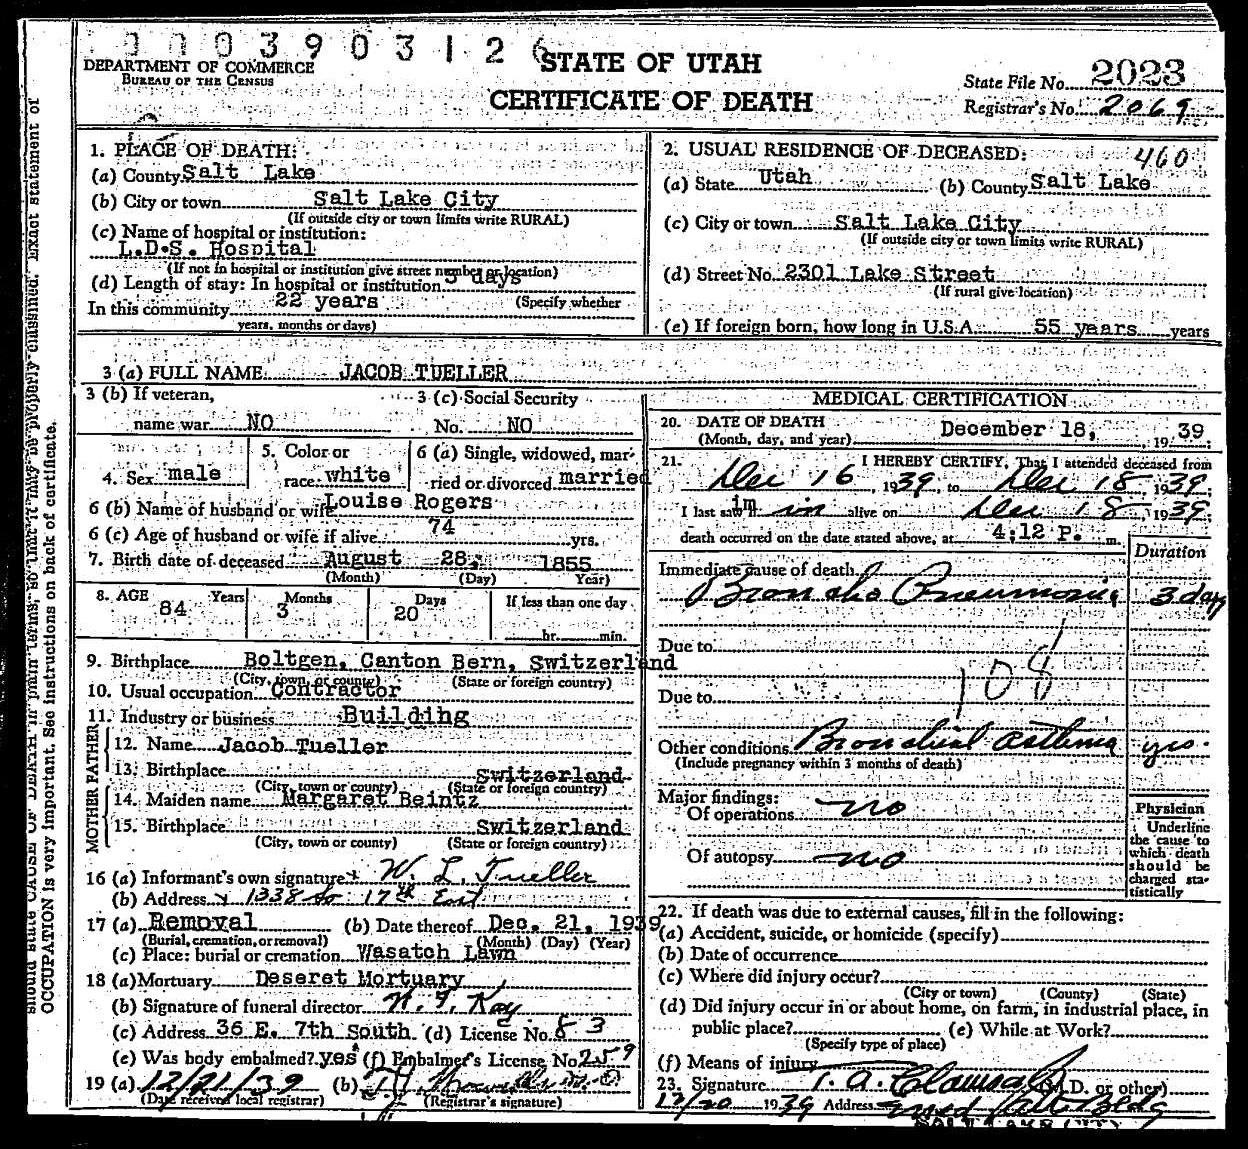 000390312
STATE OF UTAH
DEPARTMENT OF COMMERCE
BUREAU OF THE CENSUS
CERTIFICATE OF DEATH
State File No. 2023
Registrar's No. 2069
1. PLACE OF DEATH:
(a) County Salt Lake
(b) City or town Salt Lake City
(If outside city or town limits write RURAL)
(c) Name of hospital or institution:
L.D.S. Hospital
(If not in hospital or institution give street number or location)
(d) Length of stay: In hospital or institution 3 days
In this community 22 years (Specify whether
years, months or days)
2. USUAL RESIDENCE OF DECEASED: 460
(a) State Utah (b) County Salt Lake
(c) City or town Salt Lake City
(If outside city or town limits write RURAL)
(d) Street No. 2301 Lake Street
(If rural give location)
(e) If foreign born, how long in U.S.A. 55 years years
3 (a) FULL NAME JACOB TUELLER
3 (b) If veteran,
name war NO
3 (c) Social Security
No. NO
4. Sex male
5. Color or
race white
6 (a) Single, widowed, mar-
ried or divorced married
6 (b) Name of husband or wife Louise Rogers
6 (c) Age of husband or wife if alive 74 yrs.
7. Birth date of deceased August 28, 1855
(Month) (Day) Year)
8. AGE Years Months Days If less than one day
84 3 20 hr. min.
9. Birthplace Boltgen, Canton Bern, Switzerland
(City, town, or county) (State or foreign country)
10. Usual occupation Contractor
11. Industry or business Building
FATHER
12. Name Jacob Tueller
13. Birthplace Switzerland
(City, town or county) (State or foreign country)
MOTHER
14. Maiden name Margaret Beintz
15. Birthplace Switzerland
(City, town or county) (State or foreign country)
16 (a) Informant's own signature W. L. Tueller
(b) Address 1338 So 17th East
17 (a) Removal (b) Date thereof Dec. 21, 1939
(Burial, cremation, or removal) (Month) (Day) (Year)
(c) Place: burial or cremation Wasatch Lawn
18 (a) Mortuary Deseret Mortuary
(b) Signature of funeral director Kay
(c) Address 36 E. 7th South (d) License No. 83
(e) Was body embalmed? yes (f) Embalmer's License No. 259
19 (a) 12/21/39 (b)
(Date received local registrar) (Registrar's signature)
MEDICAL CERTIFICATION
20. DATE OF DEATH
(Month, day, and year) December 18, 1939
21. I HEREBY CERTIFY, That I attended deceased from
Dec 16, 1939, to Dec 18 1939,
I last saw him alive on Dec 18, 1939,
death occurred on the date stated above, at 4:12 P. m.
Duration
Immediate cause of death
Broncho Pneumonia 3 days
Due to
108
Due to
Other conditions Bronchial asthma yrs.
(Include pregnancy within 3 months of death)
Major findings:
Of operations no
Of autopsy no
Physician
Underline
the cause to
which death
should be
charged sta-
tistically
22. If death was due to external causes, fill in the following:
(a) Accident, suicide, or homicide (specify)
(b) Date of occurrence
(c) Where did injury occur?
(City or town) (County) (State)
(d) Did injury occur in or about home, on farm, in industrial place, in
public place? (e) While at Work?
(Specify type of place)
(f) Means of injury
23. Signature T. A. Clawson (M.D. or other)
12/20 1939 Address Bldg
SALT LAKE CITY
should state CAUSE OF DEATH in plain terms, so that it may be properly classified. Exact statement of
OCCUPATION is very important. See instructions on back of certificate.